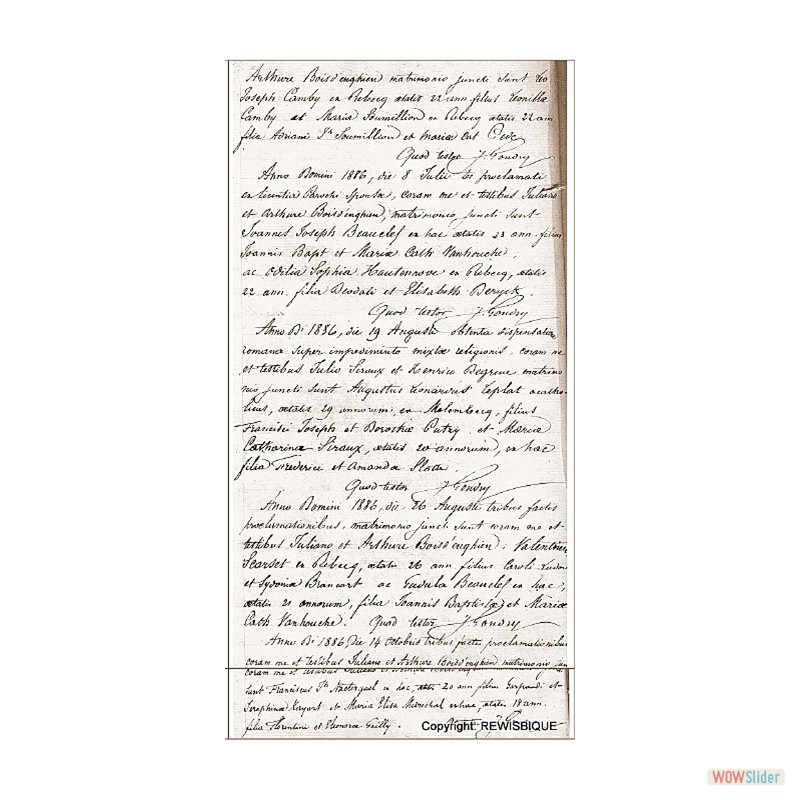 Arthure Boisd'enghien matrimonio juncti sunt
Joseph Camby ex Rebecq ætatis 22 ann filius
Camby et Maria Soumillion ex Rebecq ætatis 22 ann
filia Adriani Jh Soumillion et Mariæ Cat
Quod testor J. Gondry
Anno Domini 1886, die 8 Julii proclamati
ex licentia Parochi Sponsæ, coram me et testibus Juliano
et Arthure Boisd'enghien, matrimonio juncti sunt
Joannes Joseph Beauclef ex hac ætatis 23 ann. filius
Joannis Bapt et Mariæ Cath Vanhouche,
ac Odilia Sophia Hautenrove ex Rebecq, ætatis
22 ann. filia Deodati et Elisabeth Deryck.
Quod testor J. Gondry
Anno Di 1886, die 19 Augusti obtenta dispensatione
romana super impedimento mixtæ religionis, coram me
et testibus Julio Siraux et Henrico Degreve matrimo
nio juncti sunt Augustus Leonardus Teplat acatho-
licus, ætatis 29 annorum, ex filius
Francisci Joseph et et Maria
Catharina Siraux, ætatis 20 annorum, ex hac
filia Frederici et Amanda
Quod testor J Gondry
Anno Domini 1886, die 26 Augusti tribus factis
proclamationibus, matrimonio juncti sunt coram me et
testibus Juliano et Arthure Boisd'enghien; Valentinus
Scarset ex Rebecq, ætatis 26 ann filius Caroli
et Sydonia Brancart ac Gudula Beauclef ex hac,
ætatis 21 annorum, filia Joannis Baptistæ et Mariæ
Cath Vanhouche. Quod testor J Gondry
Anno Di 1886 die 14 Octobris tribus factis proclamationibus
coram me et testibus Juliano et Arthure Boisd'enghien matrimonio jun
sunt Franciscus Jh ex hac, 20 ann filius et
Seraphina et Maria Elisa Maréchal ex hac, ætatis 18 ann.
filia Florentini et Eleonora
Copyright: REWISBIQUE
WOWSlider